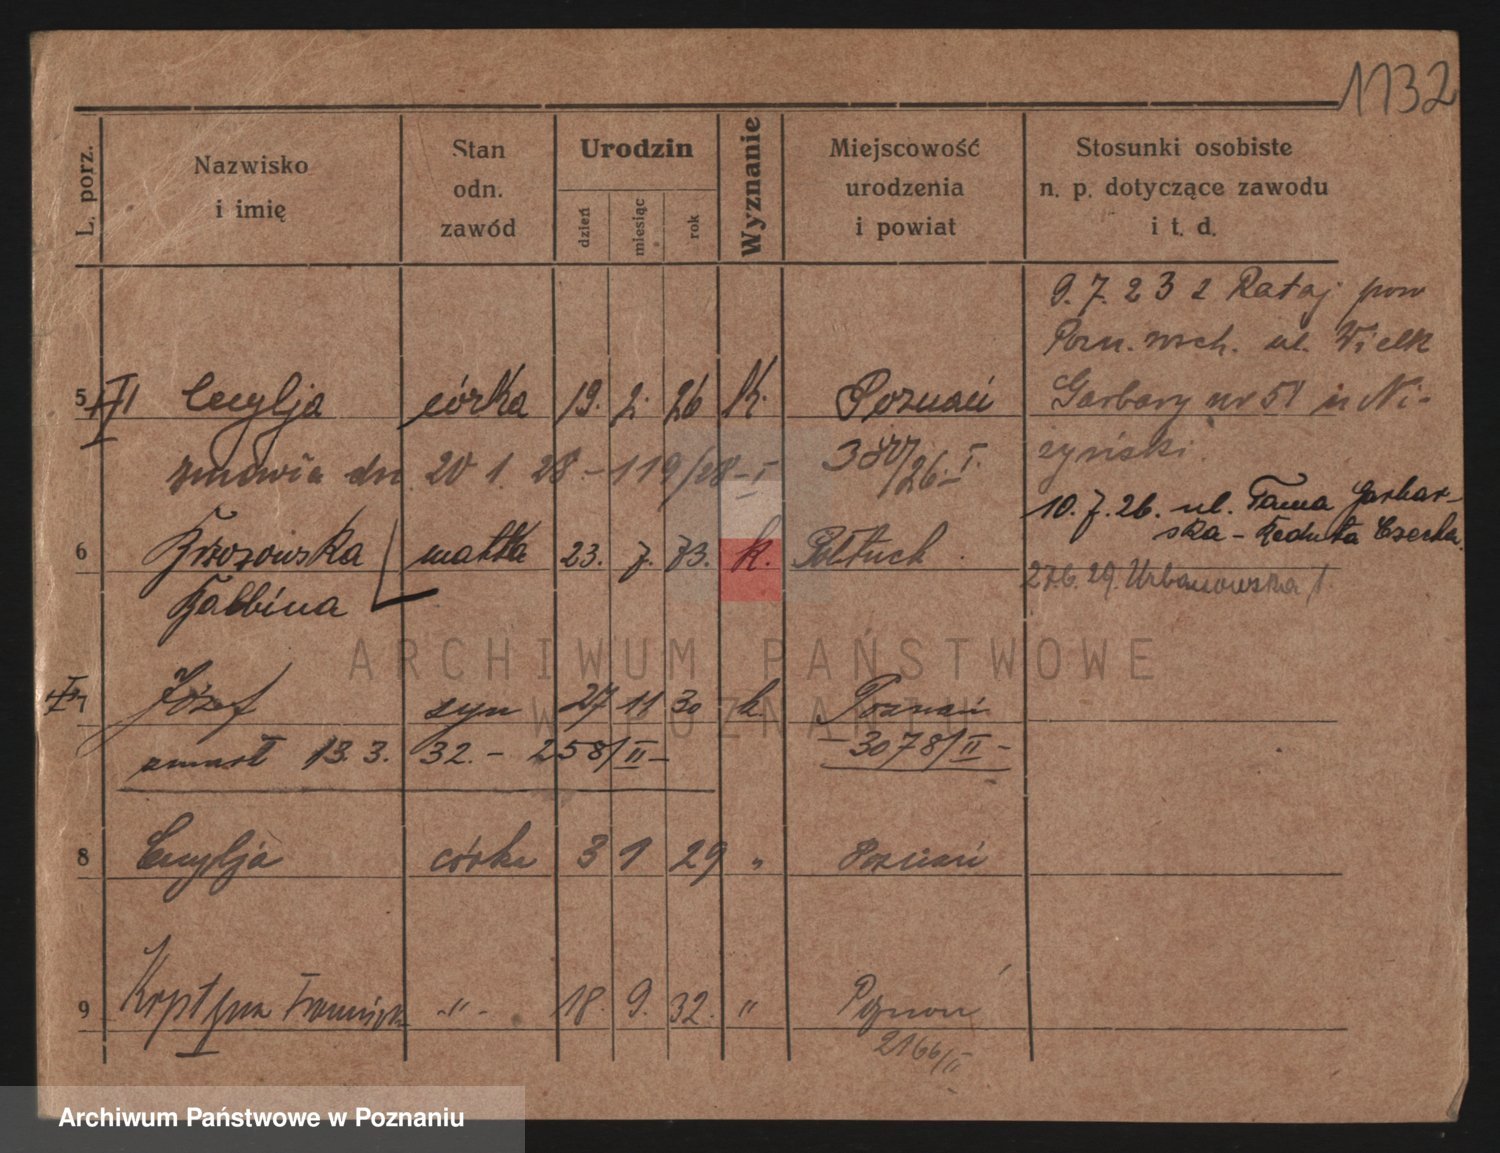 1132
L. porz.
Nazwisko
i imię
Stan
odn.
zawód
Urodzin
dzień
miesiąc
rok
Wyznanie
Miejscowość
urodzenia
i powiat
Stosunki osobiste
n. p. dotyczące zawodu
i t. d.
9. 7. 23 z Rataj pow
Pozn. wsch. ul. Wielk
5 Cecylja córka 19. 2. 26 K. Poznań Garbary nr 51
20 1. 28 - 119/28 - I 380/26 - I.
10. 7. 26. ul. Tama Garbar-
ska - Reduta Czecha.
6 Brzozowska matka 23. 7. 73. k.
27.6.29. Urbanowska 1
Balbina
ARCHIWUM PAŃSTWOWE
W POZNANIU
7 Józef syn 27 11 30 k. Poznań
zmarł 13. 3. 32. - 258/II - - 3078/II -
8 Cecylja córka 3 1 29 „ Poznań
9 Krystyna -"- 18. 9. 32. " Poznań
2166/II
Archiwum Państwowe w Poznaniu